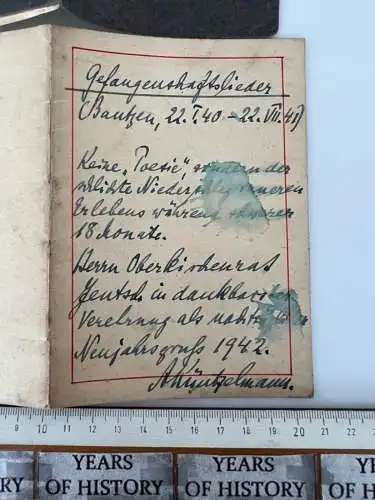 Gefangenschaftslieder
(Bautzen, 22.I.40 – 22.VII.41)
Keine "Poesie", sondern der
schlichte Niederschlag inneren
Erlebens während schwerer
18 Monate.
Herrn Oberkirchenrat
Jentsch in dankbarster
Verehrung als
Neujahrsgruß 1942.
AKüntzelmann.
10 11 12 13 14 15 16 17 18 19 20 21 22
YEARS
OF HISTORY
YEARS
OF HISTORY